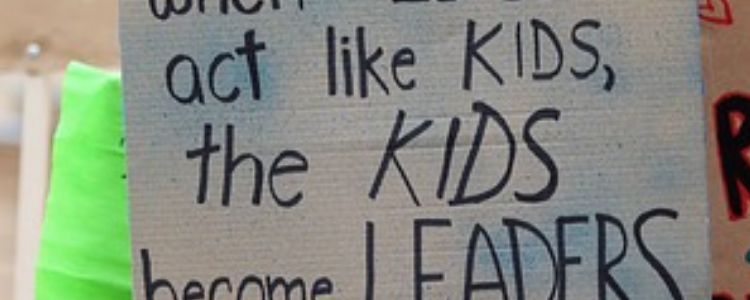 when
act like KIDS,
the KIDS
become LEADERS